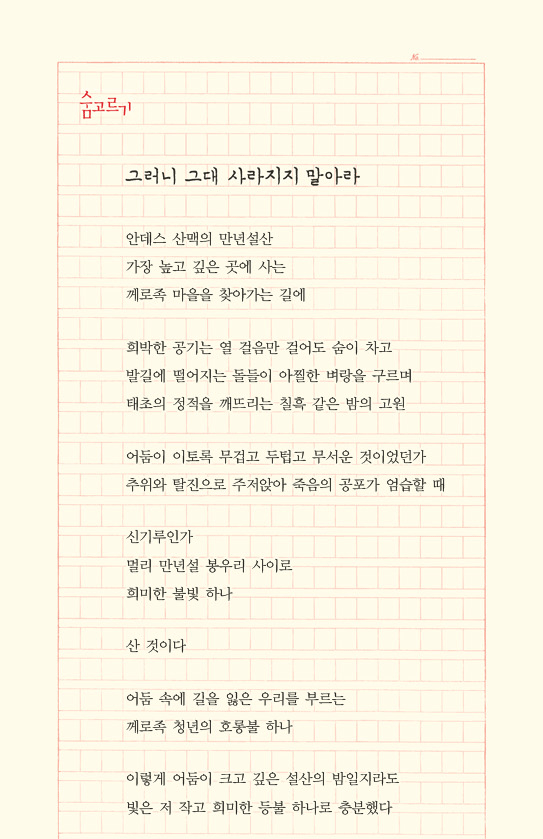 №
숨고르기
그러니 그대 사라지지 말아라
안데스 산맥의 만년설산
가장 높고 깊은 곳에 사는
께로족 마을을 찾아가는 길에
희박한 공기는 열 걸음만 걸어도 숨이 차고
발길에 떨어지는 돌들이 아찔한 벼랑을 구르며
태초의 정적을 깨뜨리는 칠흑 같은 밤의 고원
어둠이 이토록 무겁고 두텁고 무서운 것이었던가
추위와 탈진으로 주저앉아 죽음의 공포가 엄습할 때
신기루인가
멀리 만년설 봉우리 사이로
희미한 불빛 하나
산 것이다
어둠 속에 길을 잃은 우리를 부르는
께로족 청년의 호롱불 하나
이렇게 어둠이 크고 깊은 설산의 밤일지라도
빛은 저 작고 희미한 등불 하나로 충분했다